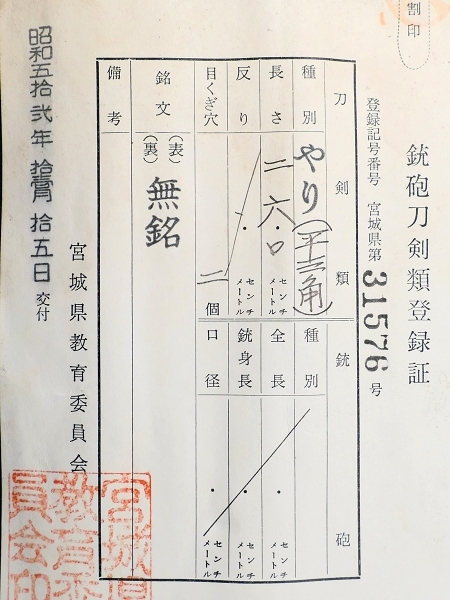 割印
銃砲刀剣類登録証
登録記号番号 宮城県第 31576 号
刀剣類
種別 やり(平三角)
長さ 二六・〇 センチメートル
反り ・ センチメートル
目くぎ穴 二 個
銘文 (表) 無銘
(裏)
備考
銃砲
種別
全長 ・ センチメートル
銃身長 ・ センチメートル
口径 ・ センチメートル
昭和五拾弐年 拾壹月 拾五日 交付
宮城県教育委員会
宮城県
教育委
員会印